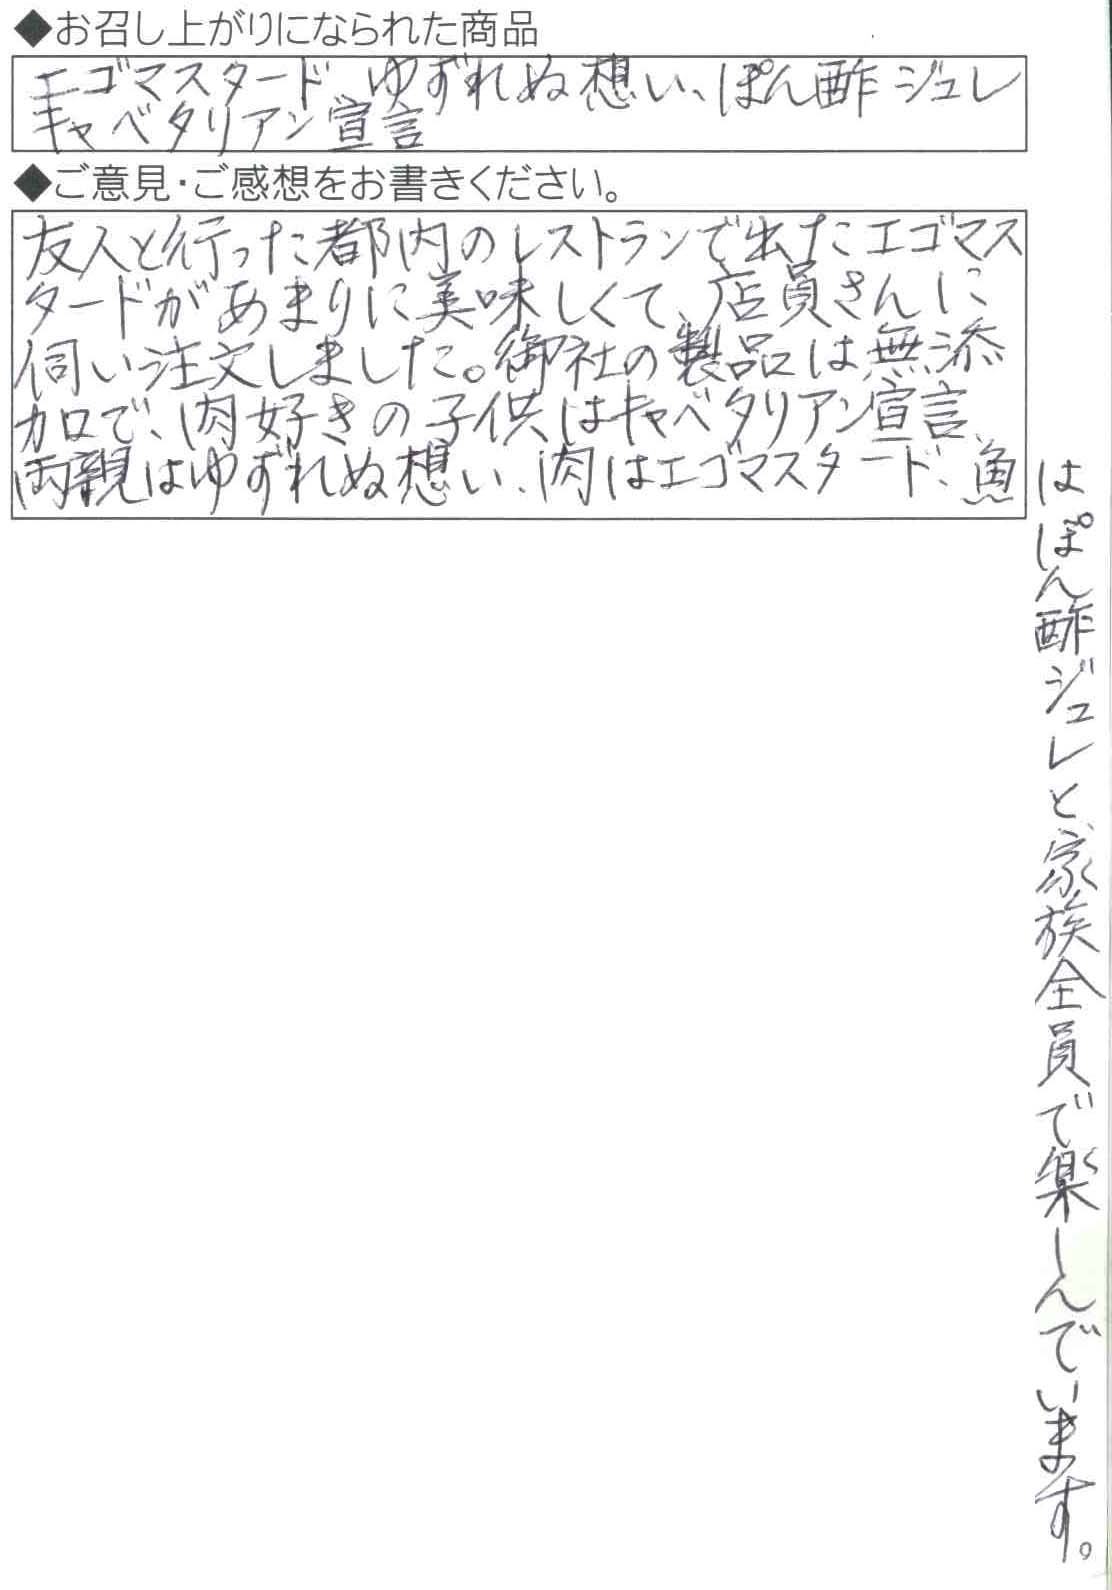 ◆お召し上がりになられた商品
エゴマスタード、ゆずれぬ想い、ぽん酢ジュレ
キャベタリアン宣言
◆ご意見・ご感想をお書きください。
友人と行った都内のレストランで出たエゴマス
タードがあまりに美味しくて、店員さんに
伺い注文しました。御社の製品は無添
加で、肉好きの子供はキャベタリアン宣言、
両親はゆずれぬ想い、肉はエゴマスタード、魚
はぽん酢ジュレと、家族全員で楽しんでいます。